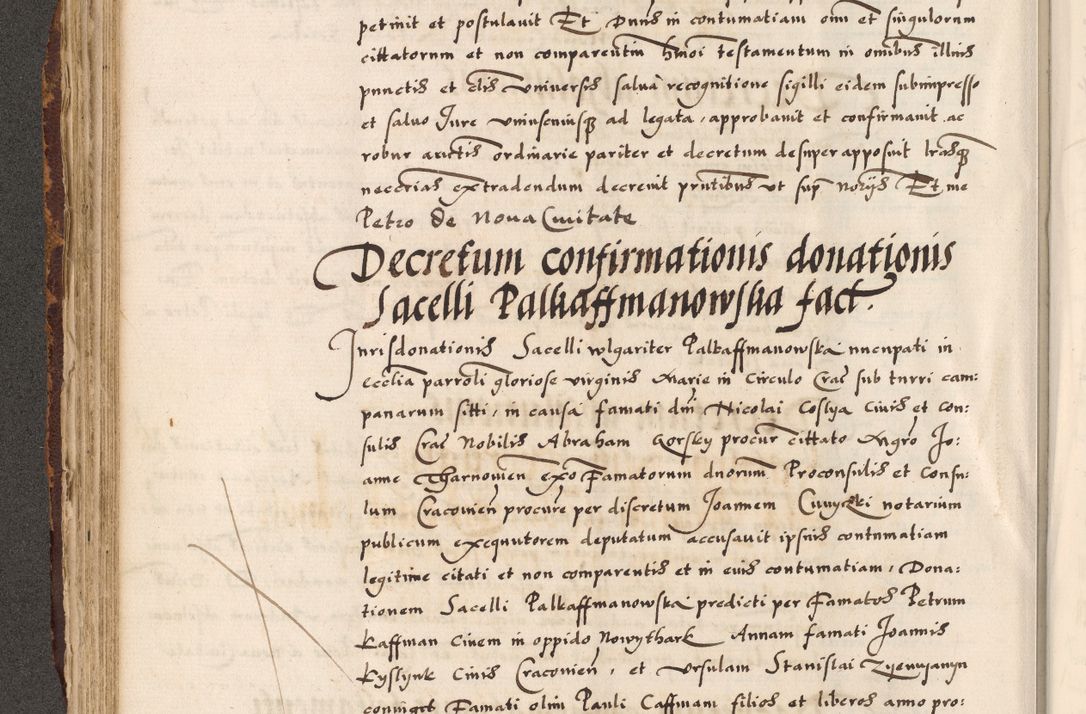 petiuit et postulauit Et Dnus in contumatiam oim et singulorum
cittatorum et non comparentiu hmoi testamentum in omibus illius
punctis et clis vniuersis salua recognitione sigilli eidem subimpresso
et saluo Jure vniuscuiusq ad legata, approbauit et confirmauit ac
robur auctis ordinarie pariter et decretum desuper apposuit lrasq
necerias extradendum decreuit pntibus vt sup notijs Et me
Petro de Noua Ciuitate
Decretum confirmationis donationis
Sacelli Palkaffmanowska fact.
Jurisdonationis Sacelli wlgariter Palkaffmanowska nuncupati in
ecclia parroli gloriose virginis Marie in Circulo Crac sub turri cam-
panarum sitti, in causa famati dni Nicolai Coslya Ciuis et con-
sulis Crac Nobilis Abraham Gorsky procur cittato Mgro Jo:
anne Tharnowien exo Famatorum dnorum Proconsulis et Consu:
lum Cracouien procure per discretum Joannem notarium
publicum exequutorem deputatum accusauit ipsius contumatiam
legitime citati et non comparentis et in euis contumatiam, Dona:
tionem Sacelli Palkaffmanowska predicti per Famatos Petrum
Kaffman Ciuem in oppido Nowythark Annam famati Joannis
Kyslynk Ciuis Cracouien, et Vrsulam Stanislai
coniuget Famati olim Pauli Caffmam filios et liberos anno pro: